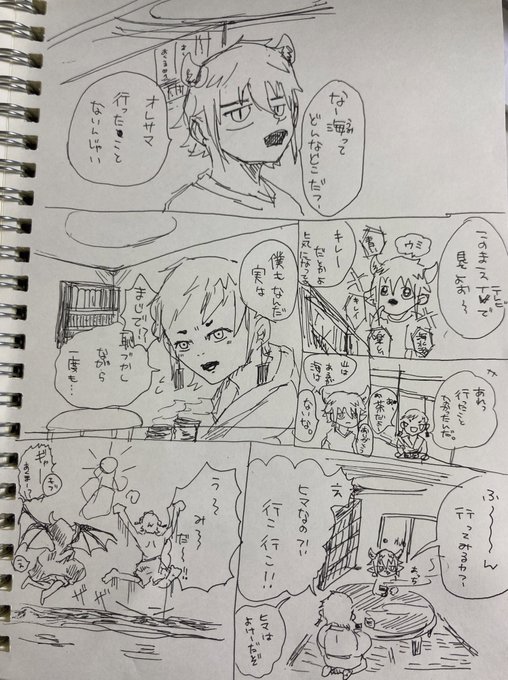 なー海って
どんなとこだっ
オレサマ
行ったこと
ないんじゃい
このまえテレビで
見たお〜
ウミ
キレー
だとかよ
気になって
キレイ
僕もなんだ
実は
まじで!?
恥づかし
ながら
一度も…
あれっ
行ったこと
なかったんだ。
山は
あるが
海は
ないな
お茶だよ
ふ〜ん
行ってみるか〜
え
ヒマなの?!
行こ行こ!!
ヒマは
よけーだぞ
う〜
み〜
だ〜!!
ギャー
ザザ